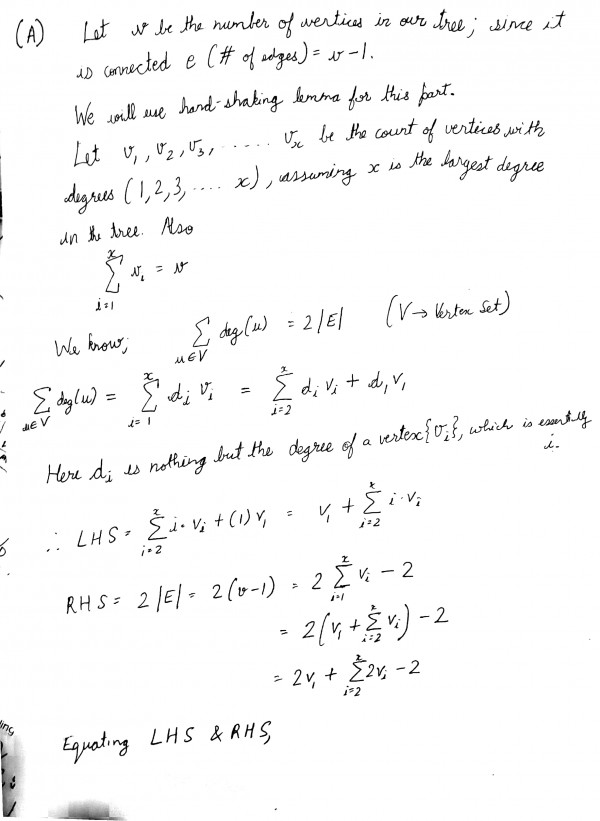 (A) Let v be the number of vertices in our tree; since it
is connected e (# of edges) = v-1.
We will use hand-shaking lemma for this part.
Let v₁, v₂, v₃, ..... vₓ be the count of vertices with
degrees (1,2,3, .... x), assuming x is the largest degree
in the tree. Also
∑_{i=1}^{x} vᵢ = v
We know; ∑_{u∈V} deg(u) = 2|E| (V → Vertex Set)
∑_{u∈V} deg(u) = ∑_{i=1}^{x} dᵢ vᵢ = ∑_{i=2}^{x} dᵢ vᵢ + d₁v₁
Here dᵢ is nothing but the degree of a vertex {vᵢ}, which is essentially
i.
∴ LHS = ∑_{i=2}^{x} i·vᵢ + (1)v₁ = v₁ + ∑_{i=2}^{x} i·vᵢ
RHS = 2|E| = 2(v-1) = 2 ∑_{i=1}^{x} vᵢ - 2
= 2(v₁ + ∑_{i=2}^{x} vᵢ) - 2
= 2v₁ + ∑_{i=2}^{x} 2vᵢ - 2
Equating LHS & RHS,